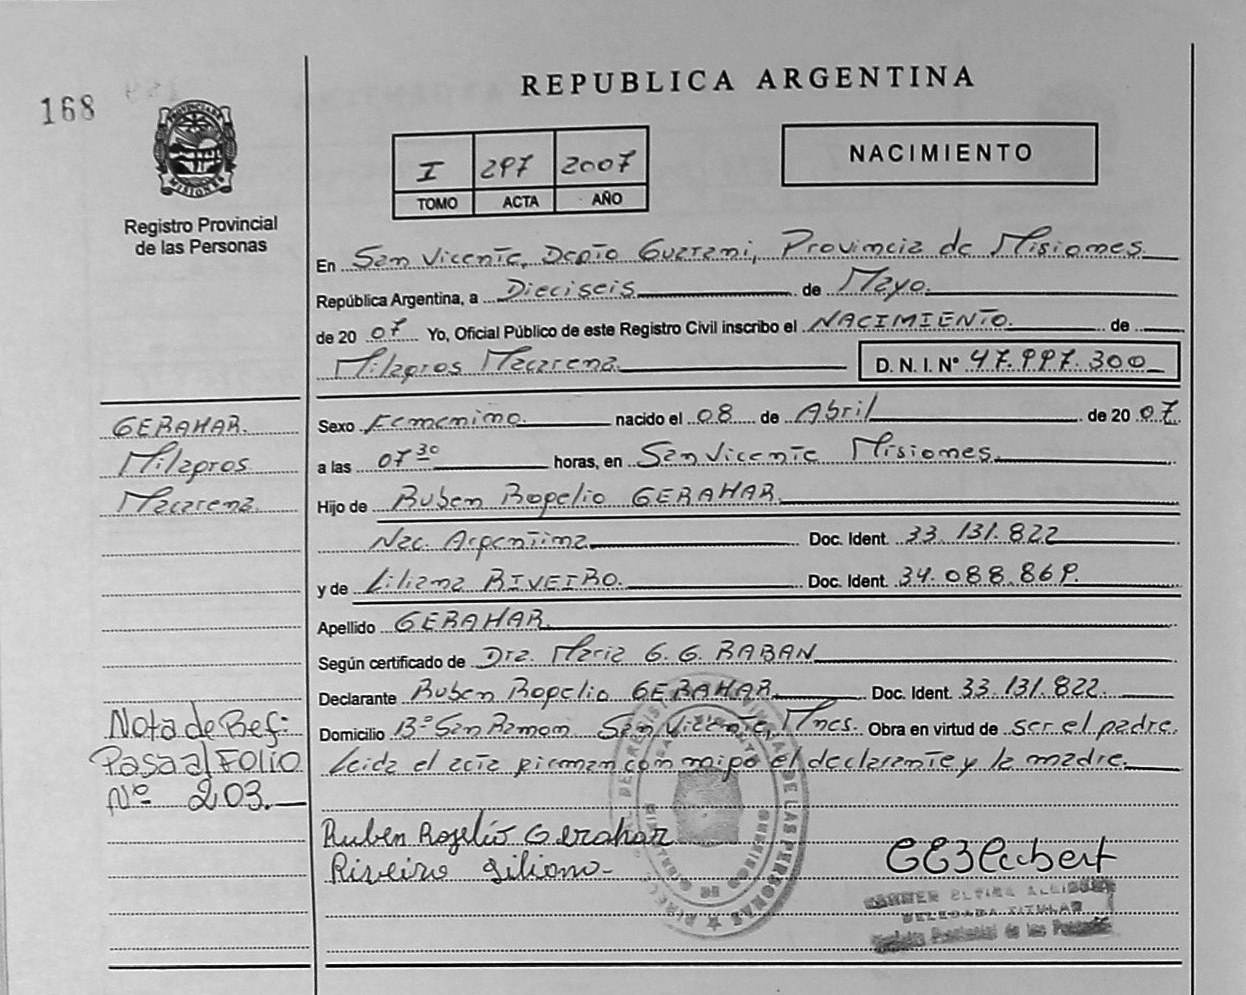 168
REPUBLICA ARGENTINA
PROVINCIA DE MISIONES
Registro Provincial
de las Personas
I 297 2007
TOMO ACTA AÑO
NACIMIENTO
En San Vicente, Depto Guarani, Provincia de Misiones.
República Argentina, a Dieciseis de Mayo.
de 20 07 Yo, Oficial Público de este Registro Civil inscribo el NACIMIENTO. de
Milagros Macarena. D. N. I. Nº 47.997.300
GERAHAR.
Milagros
Macarena.
Sexo Femenino. nacido el 08 de Abril de 20 07.
a las 07 30 horas, en San Vicente Misiones.
Hijo de Ruben Rogelio GERAHAR.
Nac. Argentina Doc. Ident. 33.131.822
y de Liliana RIVEIRO. Doc. Ident. 34.088.869.
Apellido GERAHAR.
Según certificado de Dra. Maria G. G. RABAN
Declarante Ruben Rogelio GERAHAR Doc. Ident. 33.131.822.
Domicilio Bº San Ramon San Vicente, Mnes. Obra en virtud de ser el padre.
Leida el acta firman conmigo el declarante y la madre.
Nota de Ref:
Pasa al FOLIO
Nº 203.
Ruben Rogelio Gerahar
Riveiro Liliana
DELEGADA TITULAR
Registro Provincial de las Personas